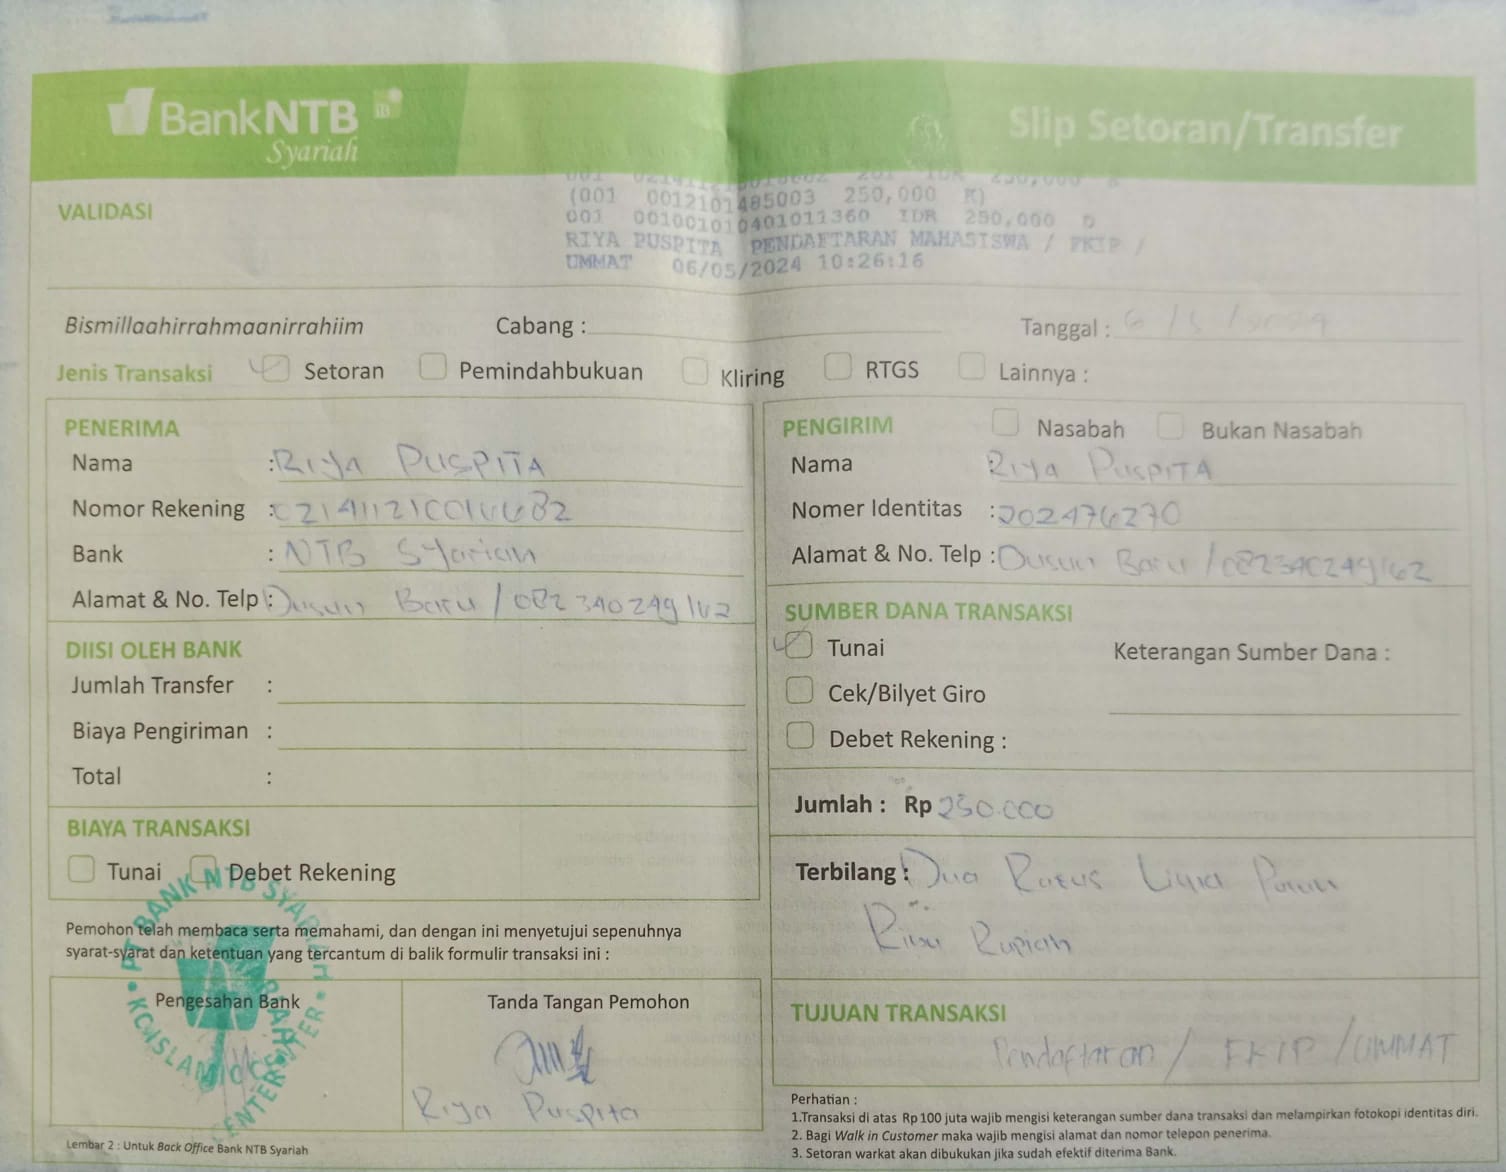 BankNTB
Syariah
Slip Setoran/Transfer
VALIDASI
(001 0012101485003 250,000 K)
001 001001010401011360 IDR 250,000 D
RIYA PUSPITA PENDAFTARAN MAHASISWA / FKIP /
UMMAT 06/05/2024 10:26:16
Bismillaahirrahmaanirrahiim Cabang : Tanggal : 6 / 5 / 2024
Jenis Transaksi Setoran Pemindahbukuan Kliring RTGS Lainnya :
PENERIMA
Nama : RIYA PUSPITA
Nomor Rekening :
Bank : NTB Syariah
Alamat & No. Telp : Dusun Baru / 082340249162
PENGIRIM Nasabah Bukan Nasabah
Nama RIYA PUSPITA
Nomer Identitas : 202476270
Alamat & No. Telp : Dusun Baru / 082340249162
DIISI OLEH BANK
Jumlah Transfer :
Biaya Pengiriman :
Total :
SUMBER DANA TRANSAKSI
Tunai Keterangan Sumber Dana :
Cek/Bilyet Giro
Debet Rekening :
BIAYA TRANSAKSI
Tunai Debet Rekening
Jumlah : Rp 250.000
Terbilang : Dua Ratus Lima Puluh
Ribu Rupiah
Pemohon telah membaca serta memahami, dan dengan ini menyetujui sepenuhnya
syarat-syarat dan ketentuan yang tercantum di balik formulir transaksi ini :
Pengesahan Bank Tanda Tangan Pemohon
Riya Puspita
PT BANK NTB SYARIAH
ISLAMIC CENTER
TUJUAN TRANSAKSI
Pendaftaran / FKIP / UMMAT
Perhatian :
1.Transaksi di atas Rp 100 juta wajib mengisi keterangan sumber dana transaksi dan melampirkan fotokopi identitas diri.
2. Bagi Walk in Customer maka wajib mengisi alamat dan nomor telepon penerima.
3. Setoran warkat akan dibukukan jika sudah efektif diterima Bank.
Lembar 2 : Untuk Back Office Bank NTB Syariah